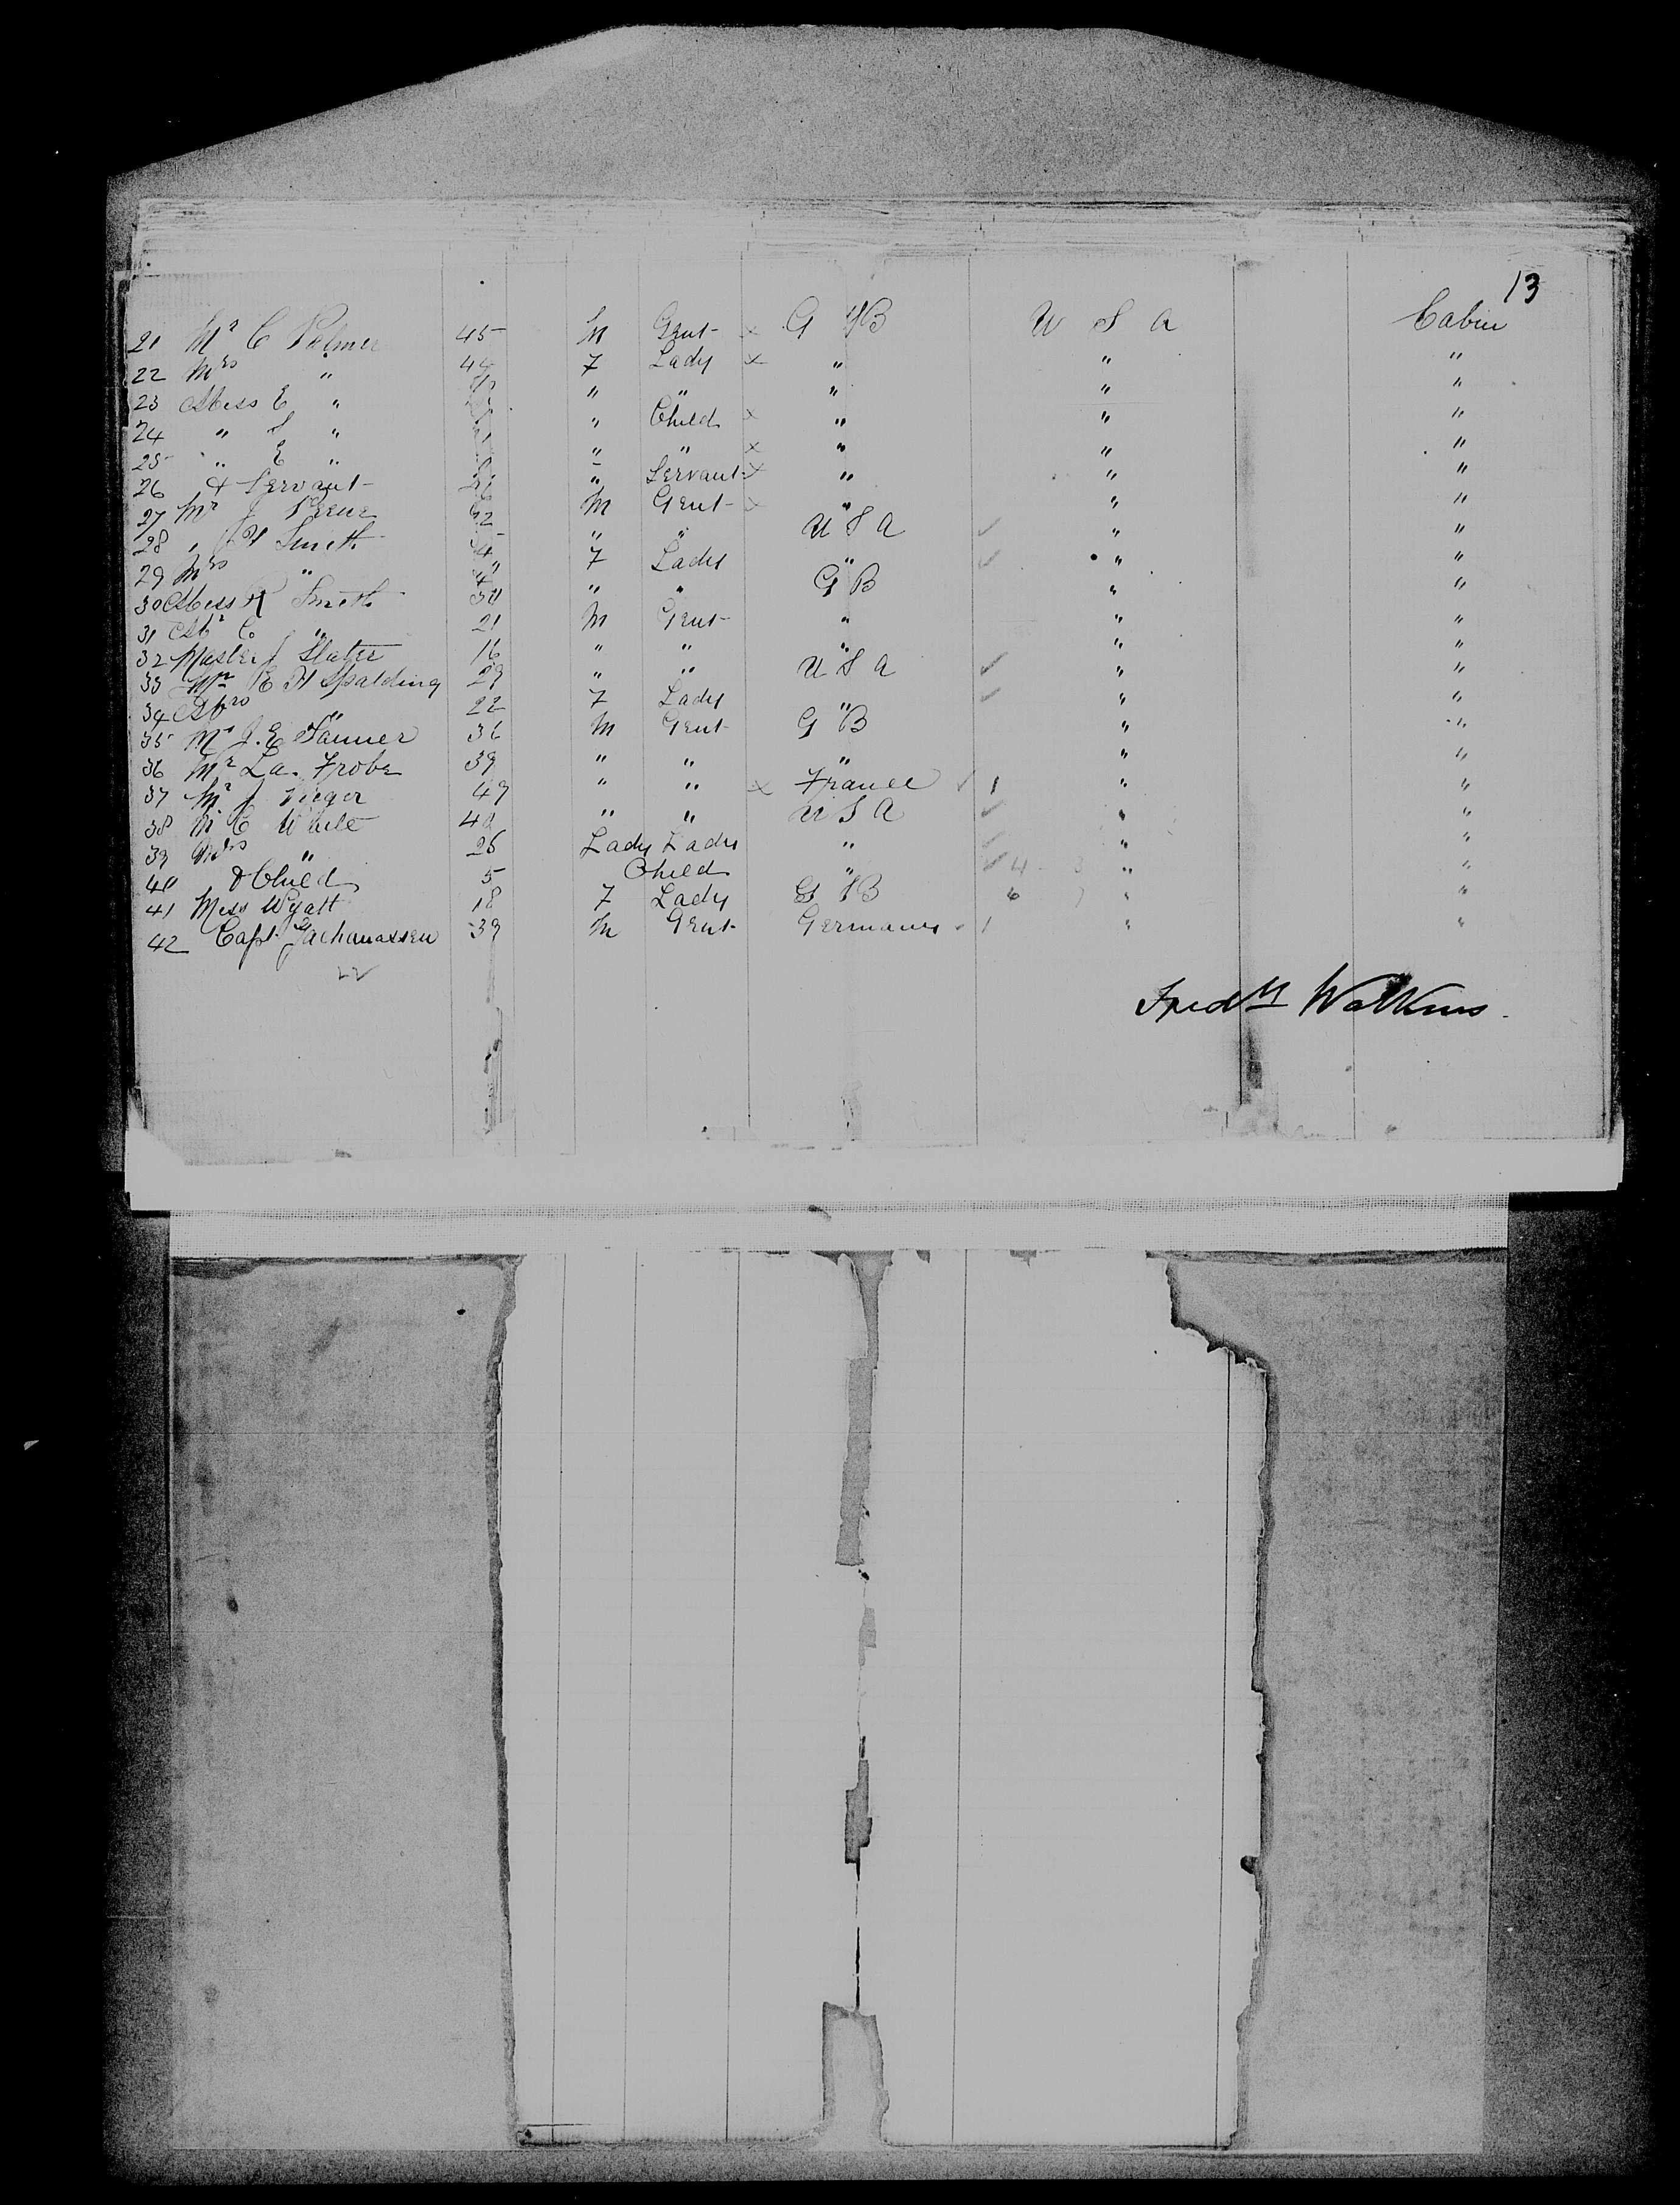 13
21 Mr C Palmer 45 M Gent x G B U S A Cabin
22 Mrs " 44 F Lady x " " "
23 Miss E " " " " " "
24 " S " " Child x " " "
25 " E " " " x " " "
26 & Servant " Servant x " " "
27 Mr J M Gent x " " "
28 " H Smith " " U S A " "
29 Mrs " F Lady " " "
30 Miss R Smith " " G B " "
31 Mr C " 21 M Gent " " "
32 Master J Slater 16 " " " " "
33 Mr E H Spalding 29 " " U S A " "
34 Mrs " 22 F Lady " " "
35 Mr J. E Tanner 36 M Gent G B " "
36 Mr La. Frobe 39 " " " " "
37 Mr J 49 " " x France 1 " "
38 Mr C White 40 " " U S A " "
39 Mrs " 26 Lady Lady " " "
40 & Child 5 Child " 4 3 " "
41 Miss Wyatt 18 F Lady G B 6 " "
42 Capt Zachariassen 39 M Gent Germany 1 " "
22
Fredk Watkins.